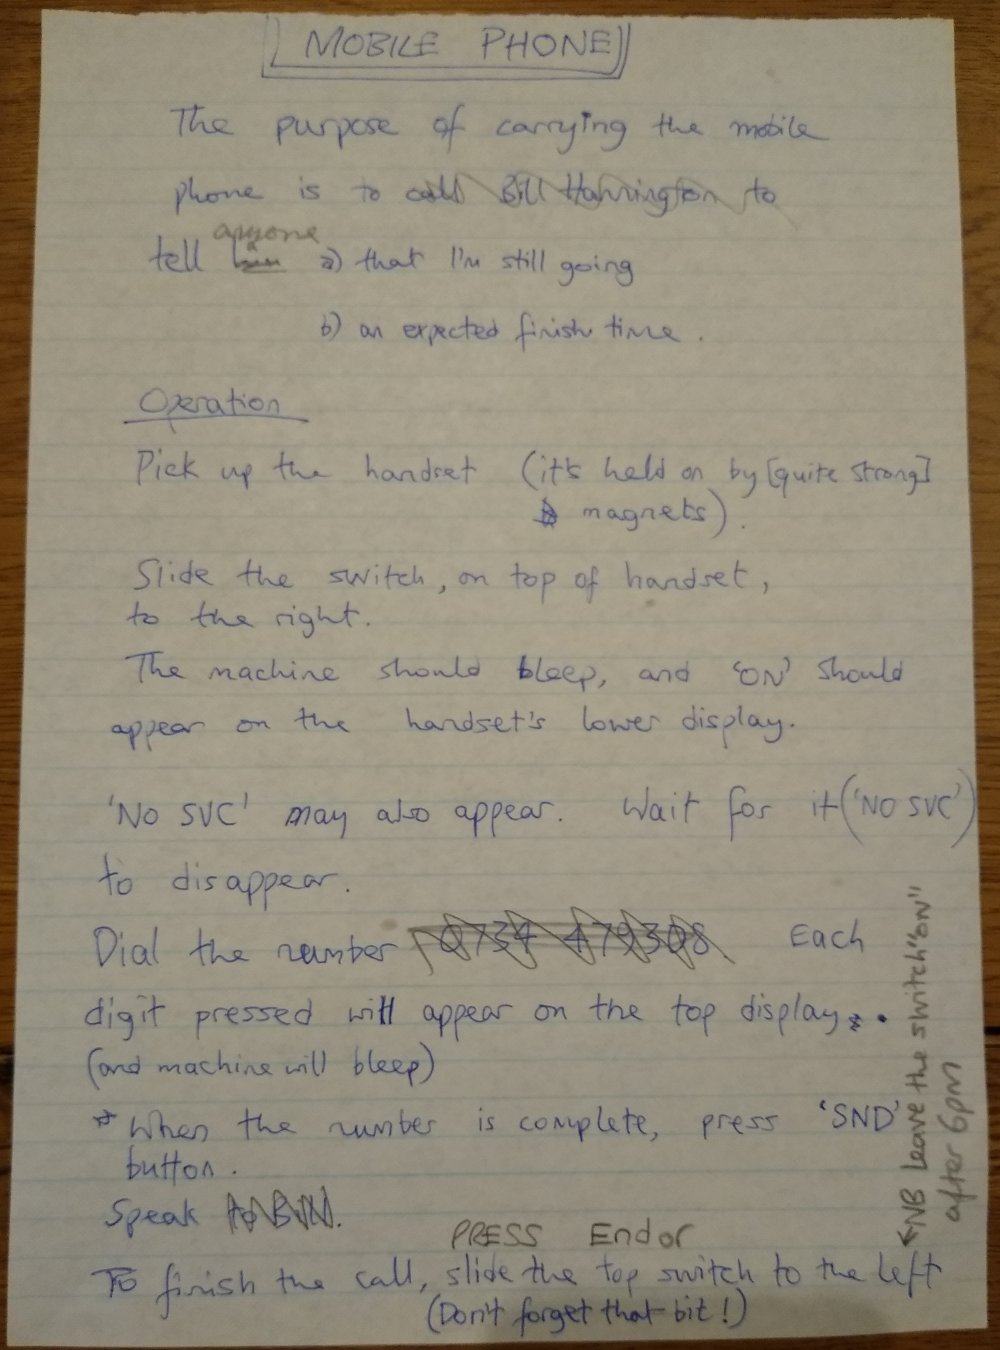 MOBILE PHONE
The purpose of carrying the mobile
phone is to call Bill Harrington to
anyone
tell him a) that I'm still going
b) an expected finish time.
Operation
Pick up the handset (it's held on by [quite strong]
magnets).
Slide the switch, on top of handset,
to the right.
The machine should bleep, and 'ON' should
appear on the handset's lower display.
'No SVC' may also appear. Wait for it ('NO SVC')
to disappear.
Dial the number 0734 479308 Each
digit pressed will appear on the top display.
(and machine will bleep)
* When the number is complete, press 'SND'
button.
Speak to Bill.
PRESS End or
To finish the call, slide the top switch to the left
(Don't forget that bit!)
NB leave the switch "on"
after 6pm